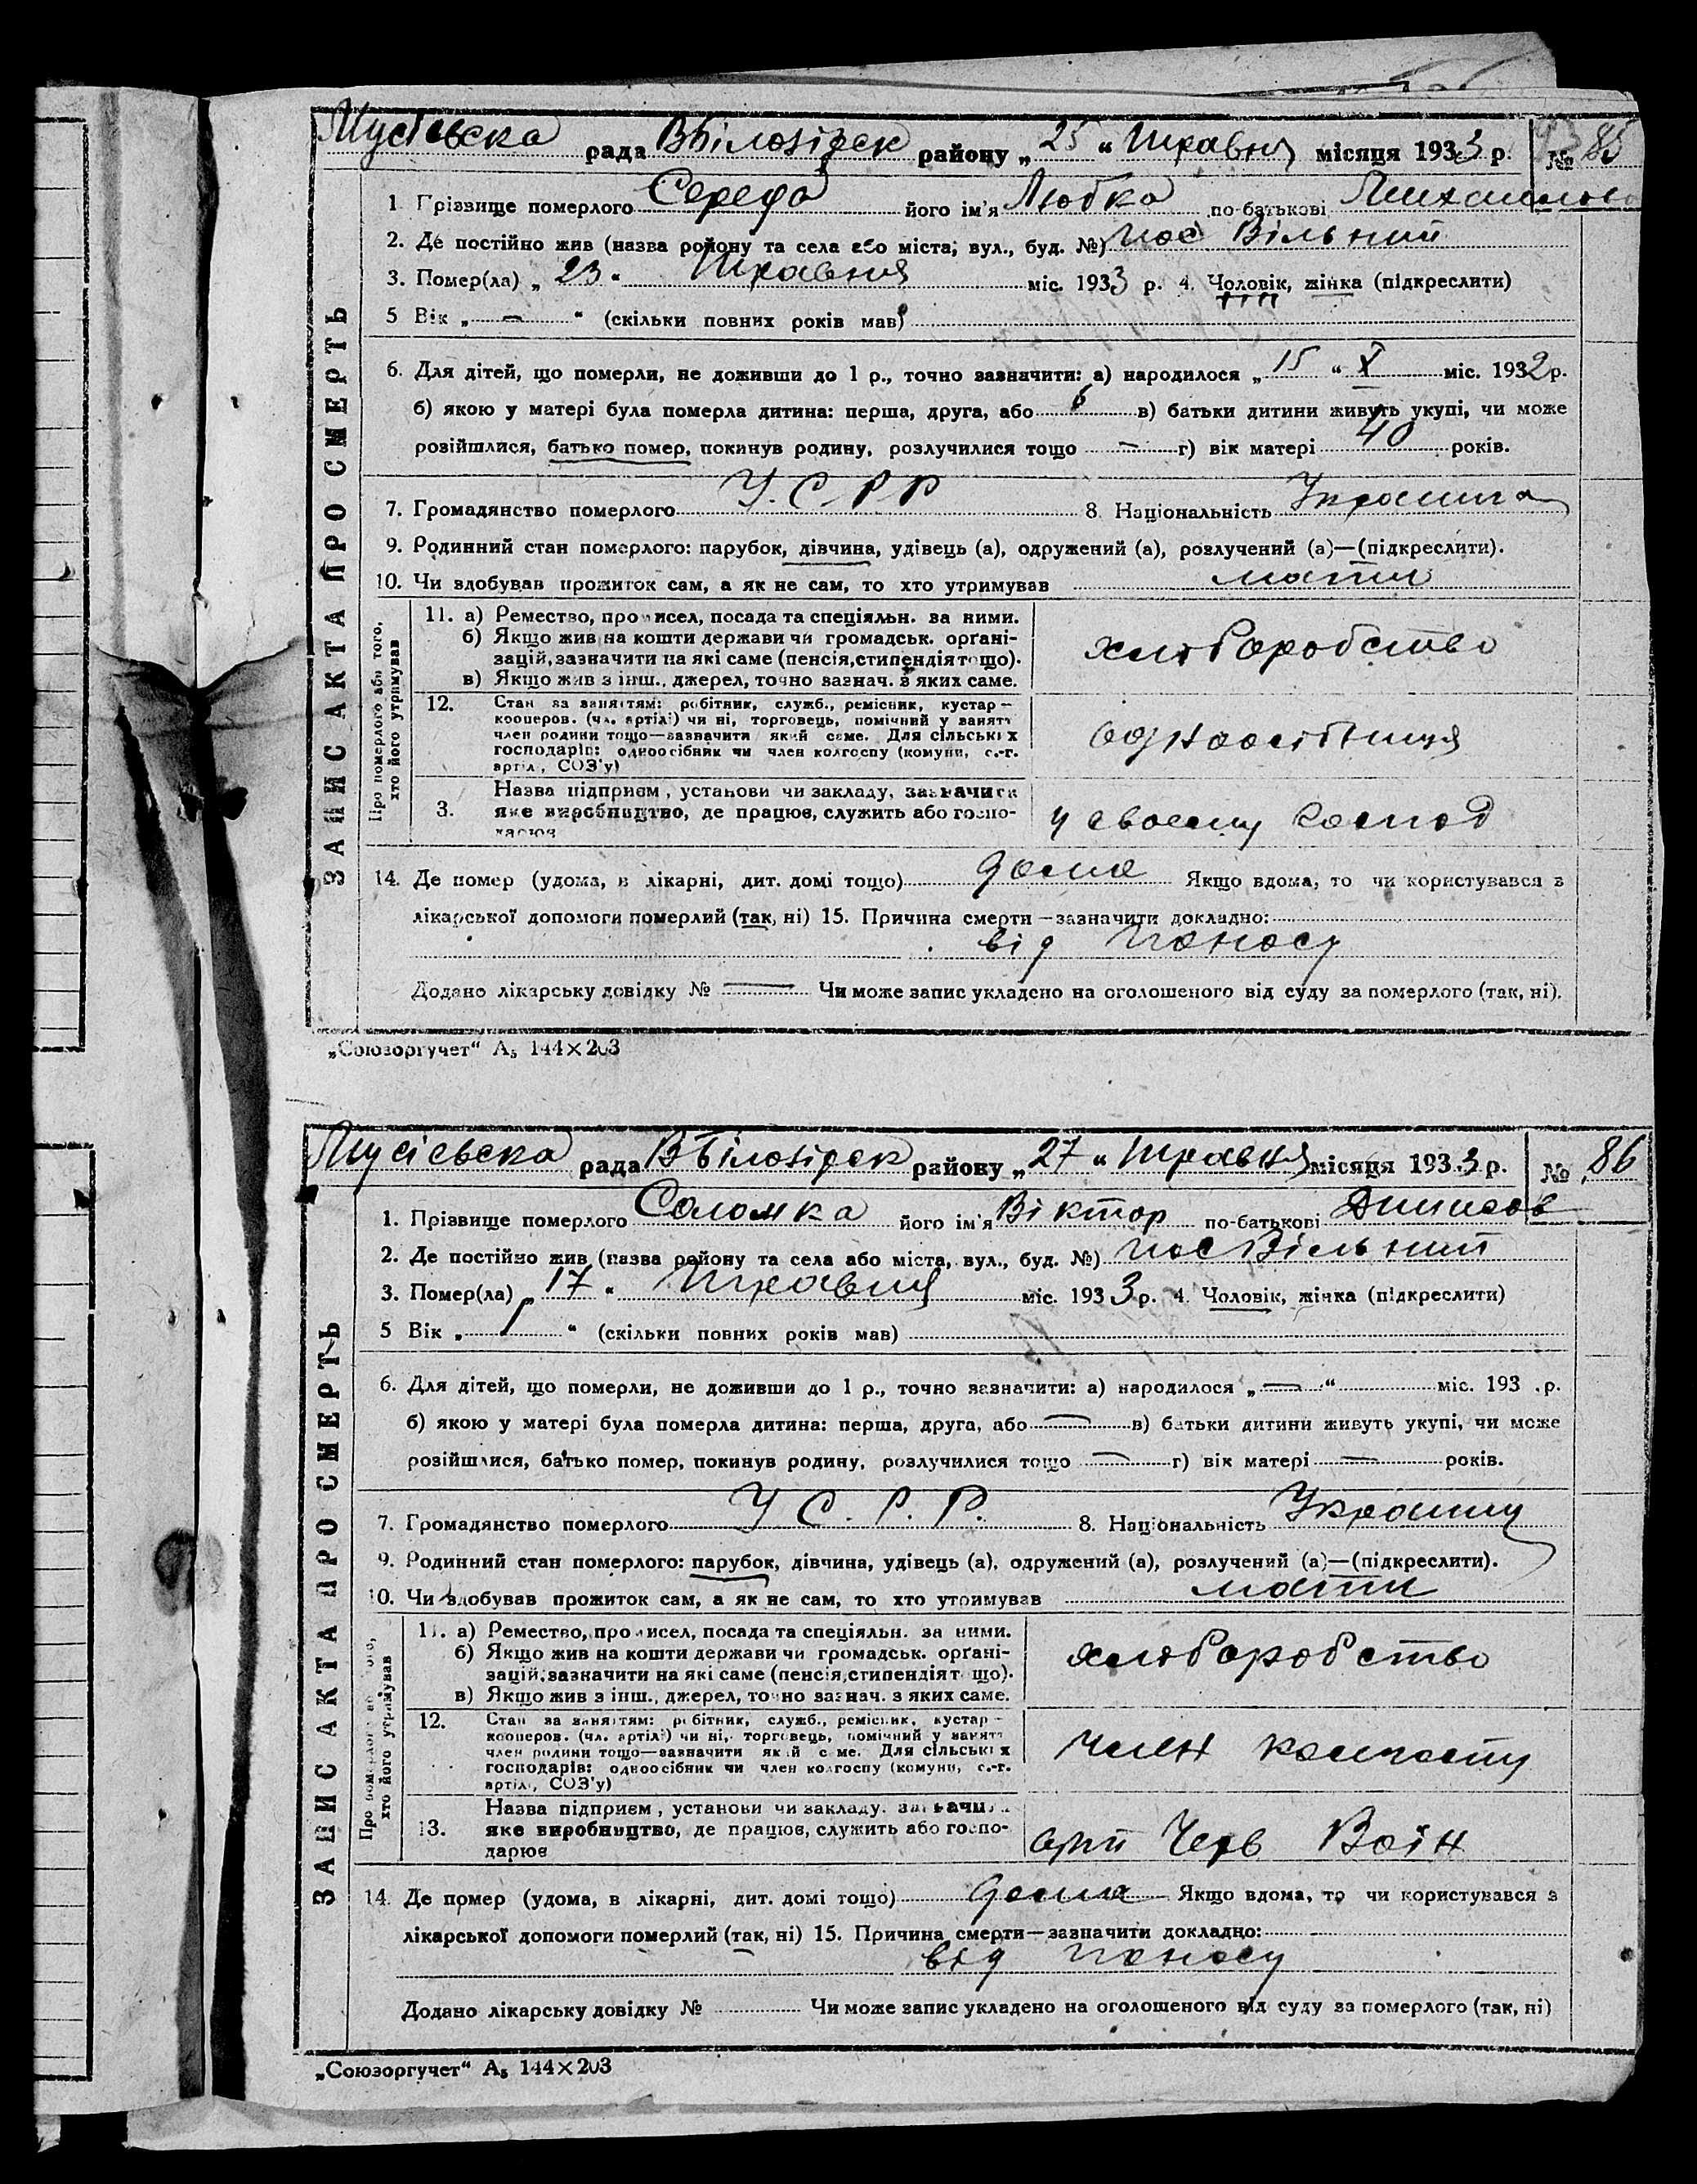 Мусіевска рада ВБілозірск району „25“ травня місяця 1933 р. № 85
ЗАПИС АКТА ПРО СМЕРТЬ
1 Прізвище померлого Середа його ім'я Любка по-батькові Михайлова
2. Де постійно жив (назва району та села або міста; вул., буд. №) пос Вільний
3. Помер(ла) „23“ травня міс. 1933 р. 4. Чоловік, жінка (підкреслити)
5 Вік „—“ (скільки повних років мав)
6. Для дітей, що померли, не доживши до 1 р., точно зазначити: а) народилося „15“ X міс. 1932 р.
б) якою у матері була померла дитина: перша, друга, або 6 в) батьки дитини живуть укупі, чи може
розійшлися, батько помер, покинув родину, розлучилися тощо — г) вік матері 40 років.
7. Громадянство померлого У.С.Р.Р 8. Національність
9. Родинний стан померлого: парубок, дівчина, удівець (а), одружений (а), розлучений (а)—(підкреслити).
10. Чи здобував прожиток сам, а як не сам, то хто утримував мати
Про померлого або того, хто його утримував
11. а) Ремество, промисел, посада та спеціяльн. за ними.
б) Якщо жив на кошти держави чи громадськ. орґані-
зацій, зазначити на які саме (пенсія, стипендія тощо).
в) Якщо жив з інш., джерел, точно зазнач. з яких саме.
хліборобство
12. Стан за заняттям: робітник, служб., ремісник, кустар—
кооперов. (чл. артілі) чи ні, торговець, помічний у занятт
член родини тощо—зазначити який саме. Для сільських
господарів: одноосібник чи член колгоспу (комуни, с.-г.
артіл., СОЗ'у)
одноосібниця
3. Назва підприєм, установи чи закладу, зазначити
яке виробництво, де працює, служить або госпо-
дарює
у своему господ
14. Де помер (удома, в лікарні, дит. домі тощо) дома Якщо вдома, то чи користувався з
лікарської допомоги померлий (так, ні) 15. Причина смерти—зазначити докладно:
від поносу
Додано лікарську довідку № — Чи може запис укладено на оголошеного від суду за померлого (так, ні).
„Союзоргучет“ А₅ 144×203
Мусіевска рада ВБілозірск району „27“ травня місяця 1933 р. № 86
ЗАПИС АКТА ПРО СМЕРТЬ
1. Прізвище померлого Соломка його ім'я Віктор по-батькові
2. Де постійно жив (назва району та села або міста, вул., буд. №) пос Вільний
3. Помер(ла) „17“ травня міс. 1933 р. 4. Чоловік, жінка (підкреслити)
5 Вік „1“ (скільки повних років мав)
6. Для дітей, що померли, не доживши до 1 р., точно зазначити: а) народилося „—“ міс. 193 . р.
б) якою у матері була померла дитина: перша, друга, або — в) батьки дитини живуть укупі, чи може
розійшлися, батько помер, покинув родину, розлучилися тощо — г) вік матері — років.
7. Громадянство померлого У С.Р.Р. 8. Національність
9. Родинний стан померлого: парубок, дівчина, удівець (а), одружений (а), розлучений (а)—(підкреслити).
10. Чи здобував прожиток сам, а як не сам, то хто утримував мати
хто його утримував
11. а) Ремество, промисел, посада та спеціяльн. за ними.
б) Якщо жив на кошти держави чи громадськ. орґані-
зацій, зазначити на які саме (пенсія, стипендія тощо).
в) Якщо жив з інш., джерел, точно зазнач. з яких саме.
хліборобство
12. Стан за заняттям: робітник, служб., ремісник, кустар—
кооперов. (чл. артілі) чи ні, торговець, помічний у занятт
член родини тощо—зазначити який саме. Для сільських
господарів: одноосібник чи член колгоспу (комуни, с.-г.
артіл., СОЗ'у)
член колгоспу
13. Назва підприєм, установи чи закладу, зазначити
яке виробництво, де працює, служить або госпо-
дарює
арт Черв Воїн
14. Де помер (удома, в лікарні, дит. домі тощо) дома Якщо вдома, то чи користувався з
лікарської допомоги померлий (так, ні) 15. Причина смерти—зазначити докладно:
від поносу
Додано лікарську довідку № Чи може запис укладено на оголошеного від суду за померлого (так, ні)
„Союзоргучет“ А₅ 144×203